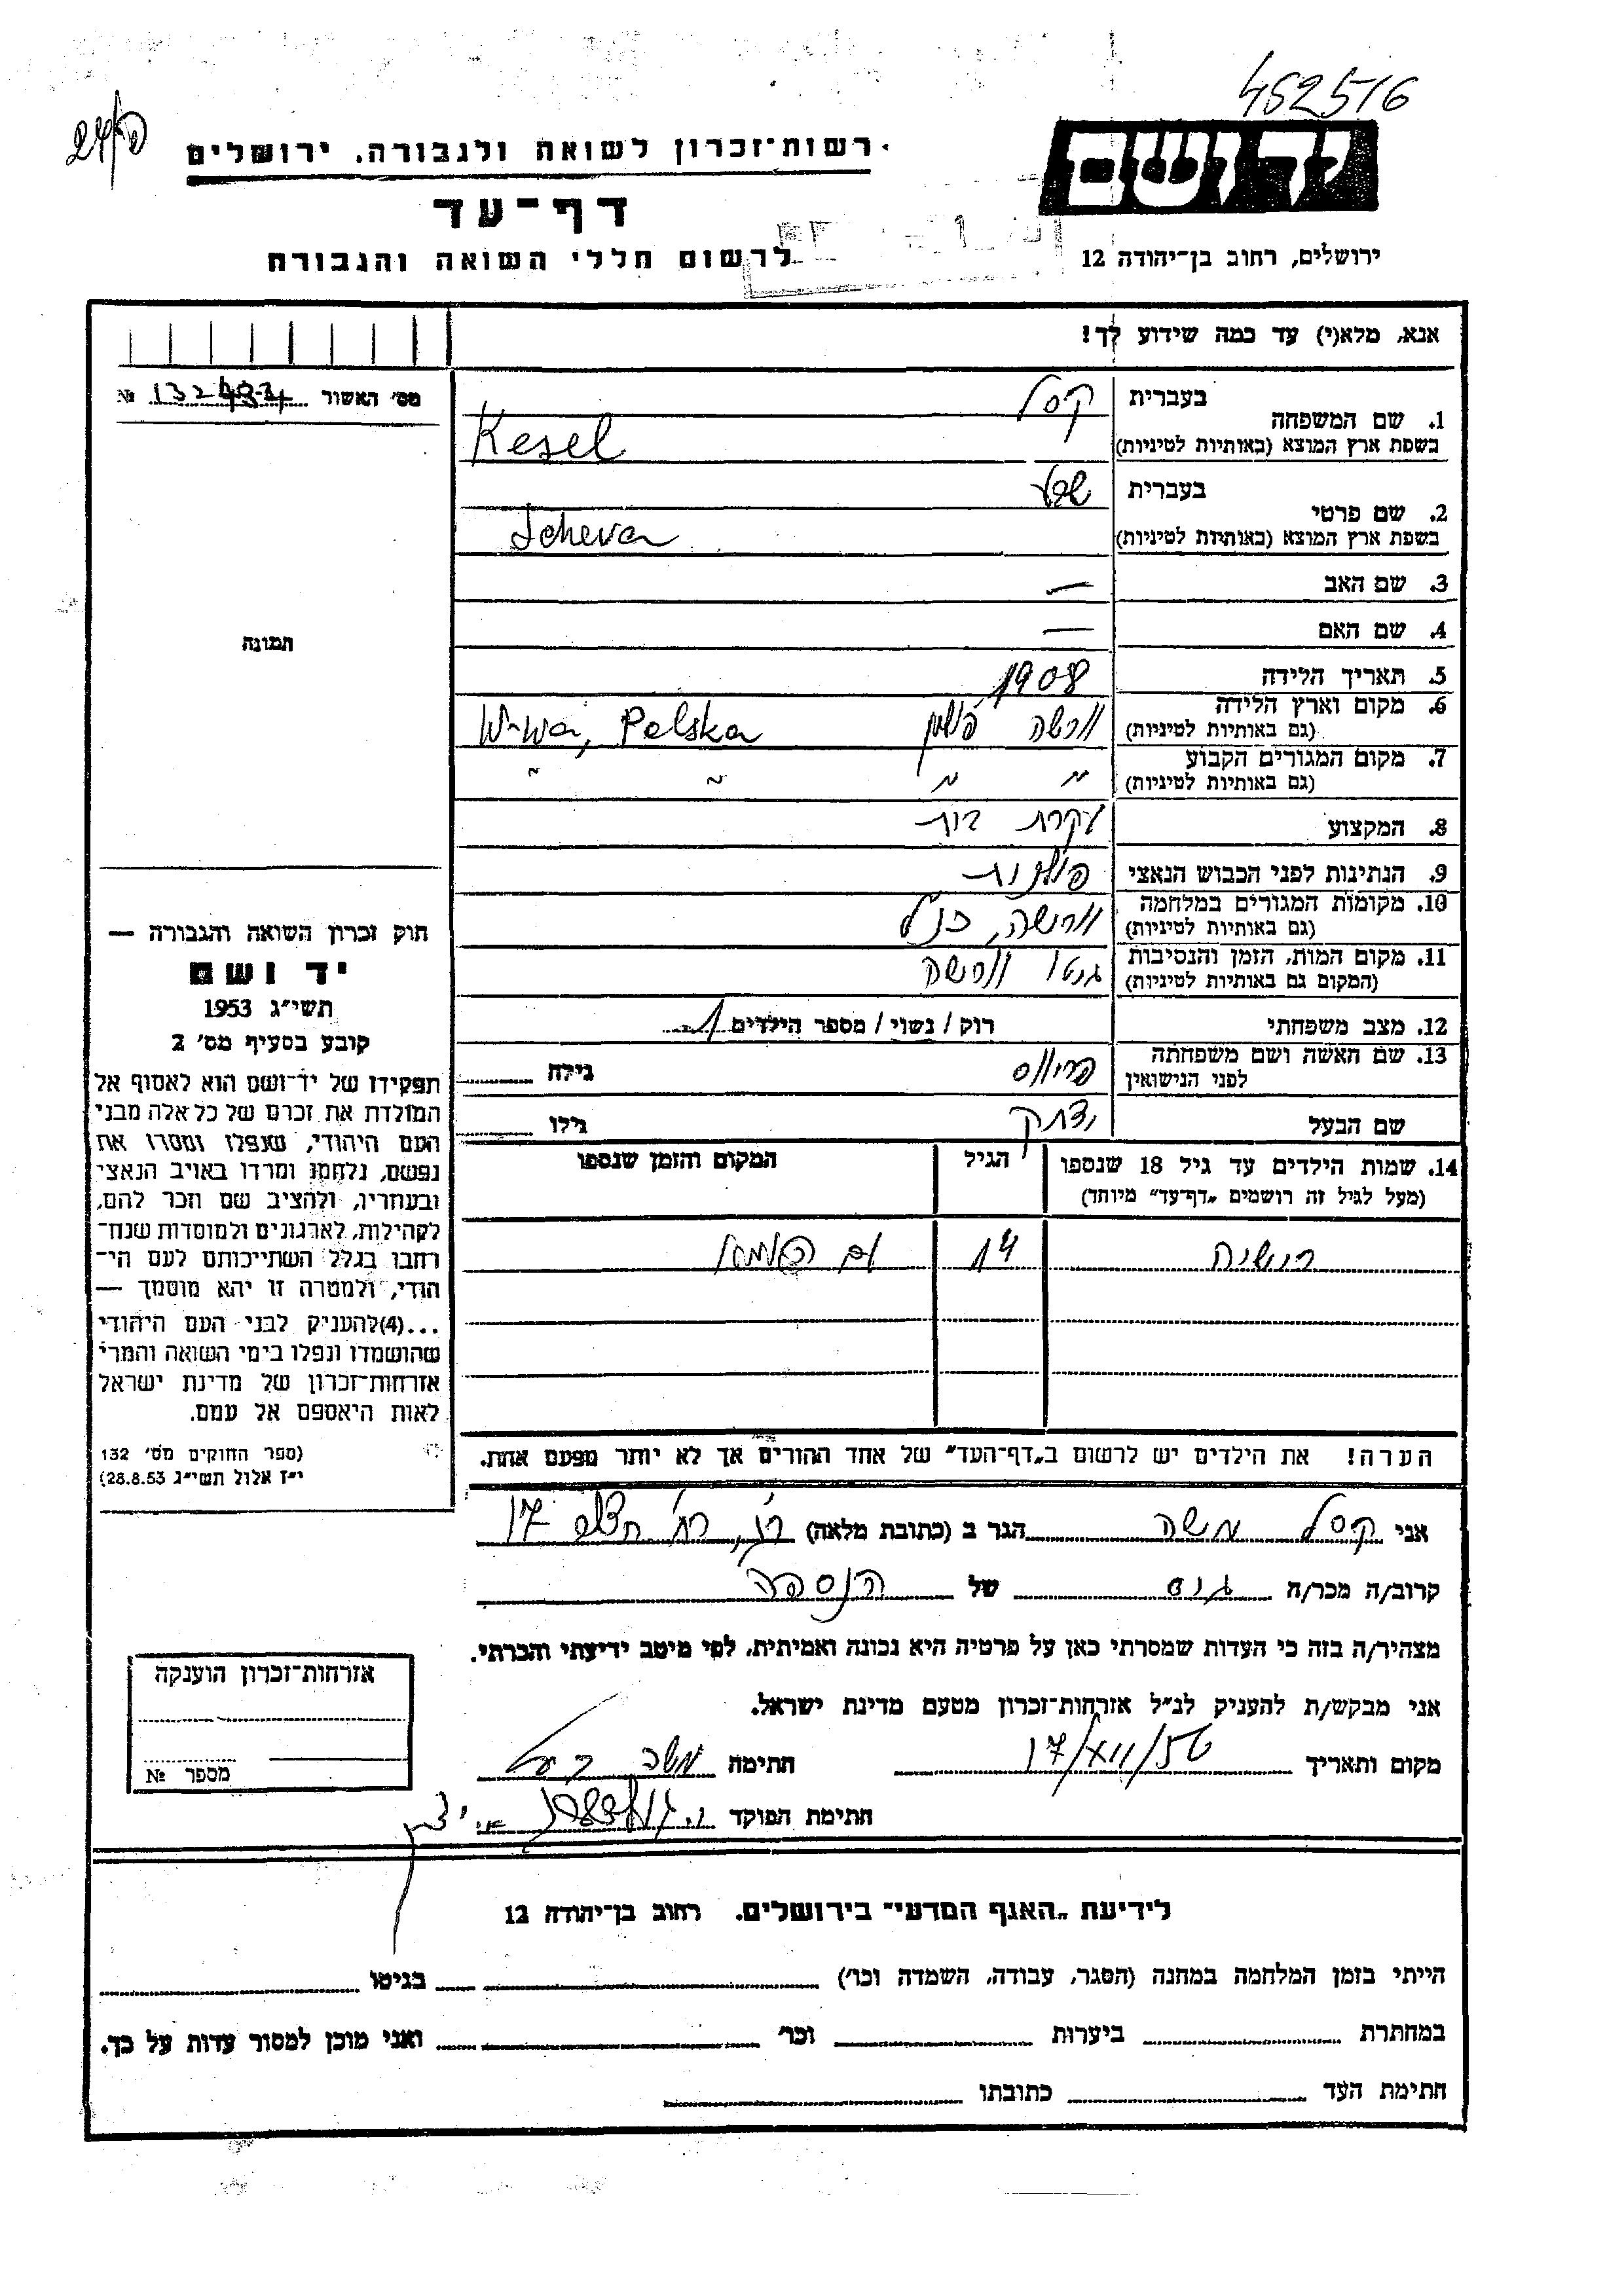 452516
רשות־זכרון לשואה ולגבורה, ירושלים
דף־עד
לרשום חללי השואה והגבורה
ידושם
ירושלים, רחוב בן־יהודה 12
אנא, מלא(י) עד כמה שידוע לך!
מס׳ האשור №
1. שם המשפחה
בעברית
קסל
בשפת ארץ המוצא (באותיות לטיניות)
Kesel
2. שם פרטי
בעברית
שבע
בשפת ארץ המוצא (באותיות לטיניות)
Scheva
3. שם האב —
4. שם האם —
תמונה
5. תאריך הלידה 1908
6. מקום וארץ הלידה
(גם באותיות לטיניות)
וורשה פולין W-wa, Polska
7. מקום המגורים הקבוע
(גם באותיות לטיניות)
״ ״ ״ ״
8. המקצוע עקרת בית
9. הנתינות לפני הכבוש הנאצי פולנית
10. מקומות המגורים במלחמה
(גם באותיות לטיניות)
וורשה, כנ״ל
11. מקום המות, הזמן והנסיבות
(המקום גם באותיות לטיניות)
גטו וורשה
12. מצב משפחתי רוק / נשוי / מספר הילדים 1
13. שם האשה ושם משפחתה
לפני הנישואין
גילה
שם הבעל יצחק גילו
14. שמות הילדים עד גיל 18 שנספו
(מעל לגיל זה רושמים „דף־עד״ מיוחד)
הגיל
המקום והזמן שנספו
14
הערה! את הילדים יש לרשום ב„דף־העד״ של אחד ההורים אך לא יותר מפעם אחת.
חוק זכרון השואה והגבורה —
יד ושם
תשי״ג 1953
קובע בסעיף מס׳ 2
תפקידו של יד־ושם הוא לאסוף אל
המולדת את זכרם של כל אלה מבני
העם היהודי, שנפלו ומסרו את
נפשם, נלחמו ומרדו באויב הנאצי
ובעוזריו, ולהציב שם וזכר להם,
לקהילות, לארגונים ולמוסדות שנח־
רבו בגלל השתייכותם לעם הי־
הודי, ולמטרה זו יהא מוסמך —
...(4)להעניק לבני העם היהודי
שהושמדו ונפלו בימי השואה והמרי
אזרחות־זכרון של מדינת ישראל
לאות היאספם אל עמם.
(ספר החוקים מס׳ 132
י״ז אלול תשי״ג 28.8.53)
אני קסל משה הגר ב (כתובת מלאה) 17
קרוב/ה מכר/ה גיס של הנספה
מצהיר/ה בזה כי העדות שמסרתי כאן על פרטיה היא נכונה ואמיתית, לפי מיטב ידיעתי והכרתי.
אני מבקש/ת להעניק לנ״ל אזרחות־זכרון מטעם מדינת ישראל.
מקום ותאריך 17/XII/56 חתימה משה קסל
חתימת הפוקד
אזרחות־זכרון הוענקה
מספר №
לידיעת „האגף המדעי״ בירושלים. רחוב בן־יהודה 12
הייתי בזמן המלחמה במחנה (הסגר, עבודה, השמדה וכו׳) בגיטו
במחתרת ביערות וכו׳ ואני מוכן למסור עדות על כך.
חתימת העד כתובתו